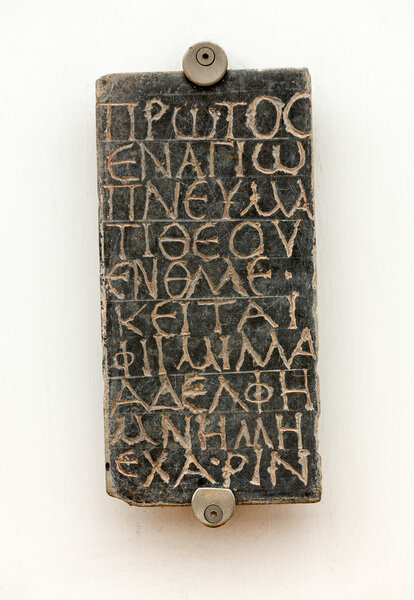 ΠΡΩΤΟC
ΕΝΑΓΙΩ
ΠΝΕΥΜΑ
ΤΙΘΕΟΥ
ΕΝΘΑΔΕ·
ΚΕΙΤΑΙ
ΑΔΕΛΦΗ
ΜΝΗΜΗ
ΕΧΑ·ΡΙΝ